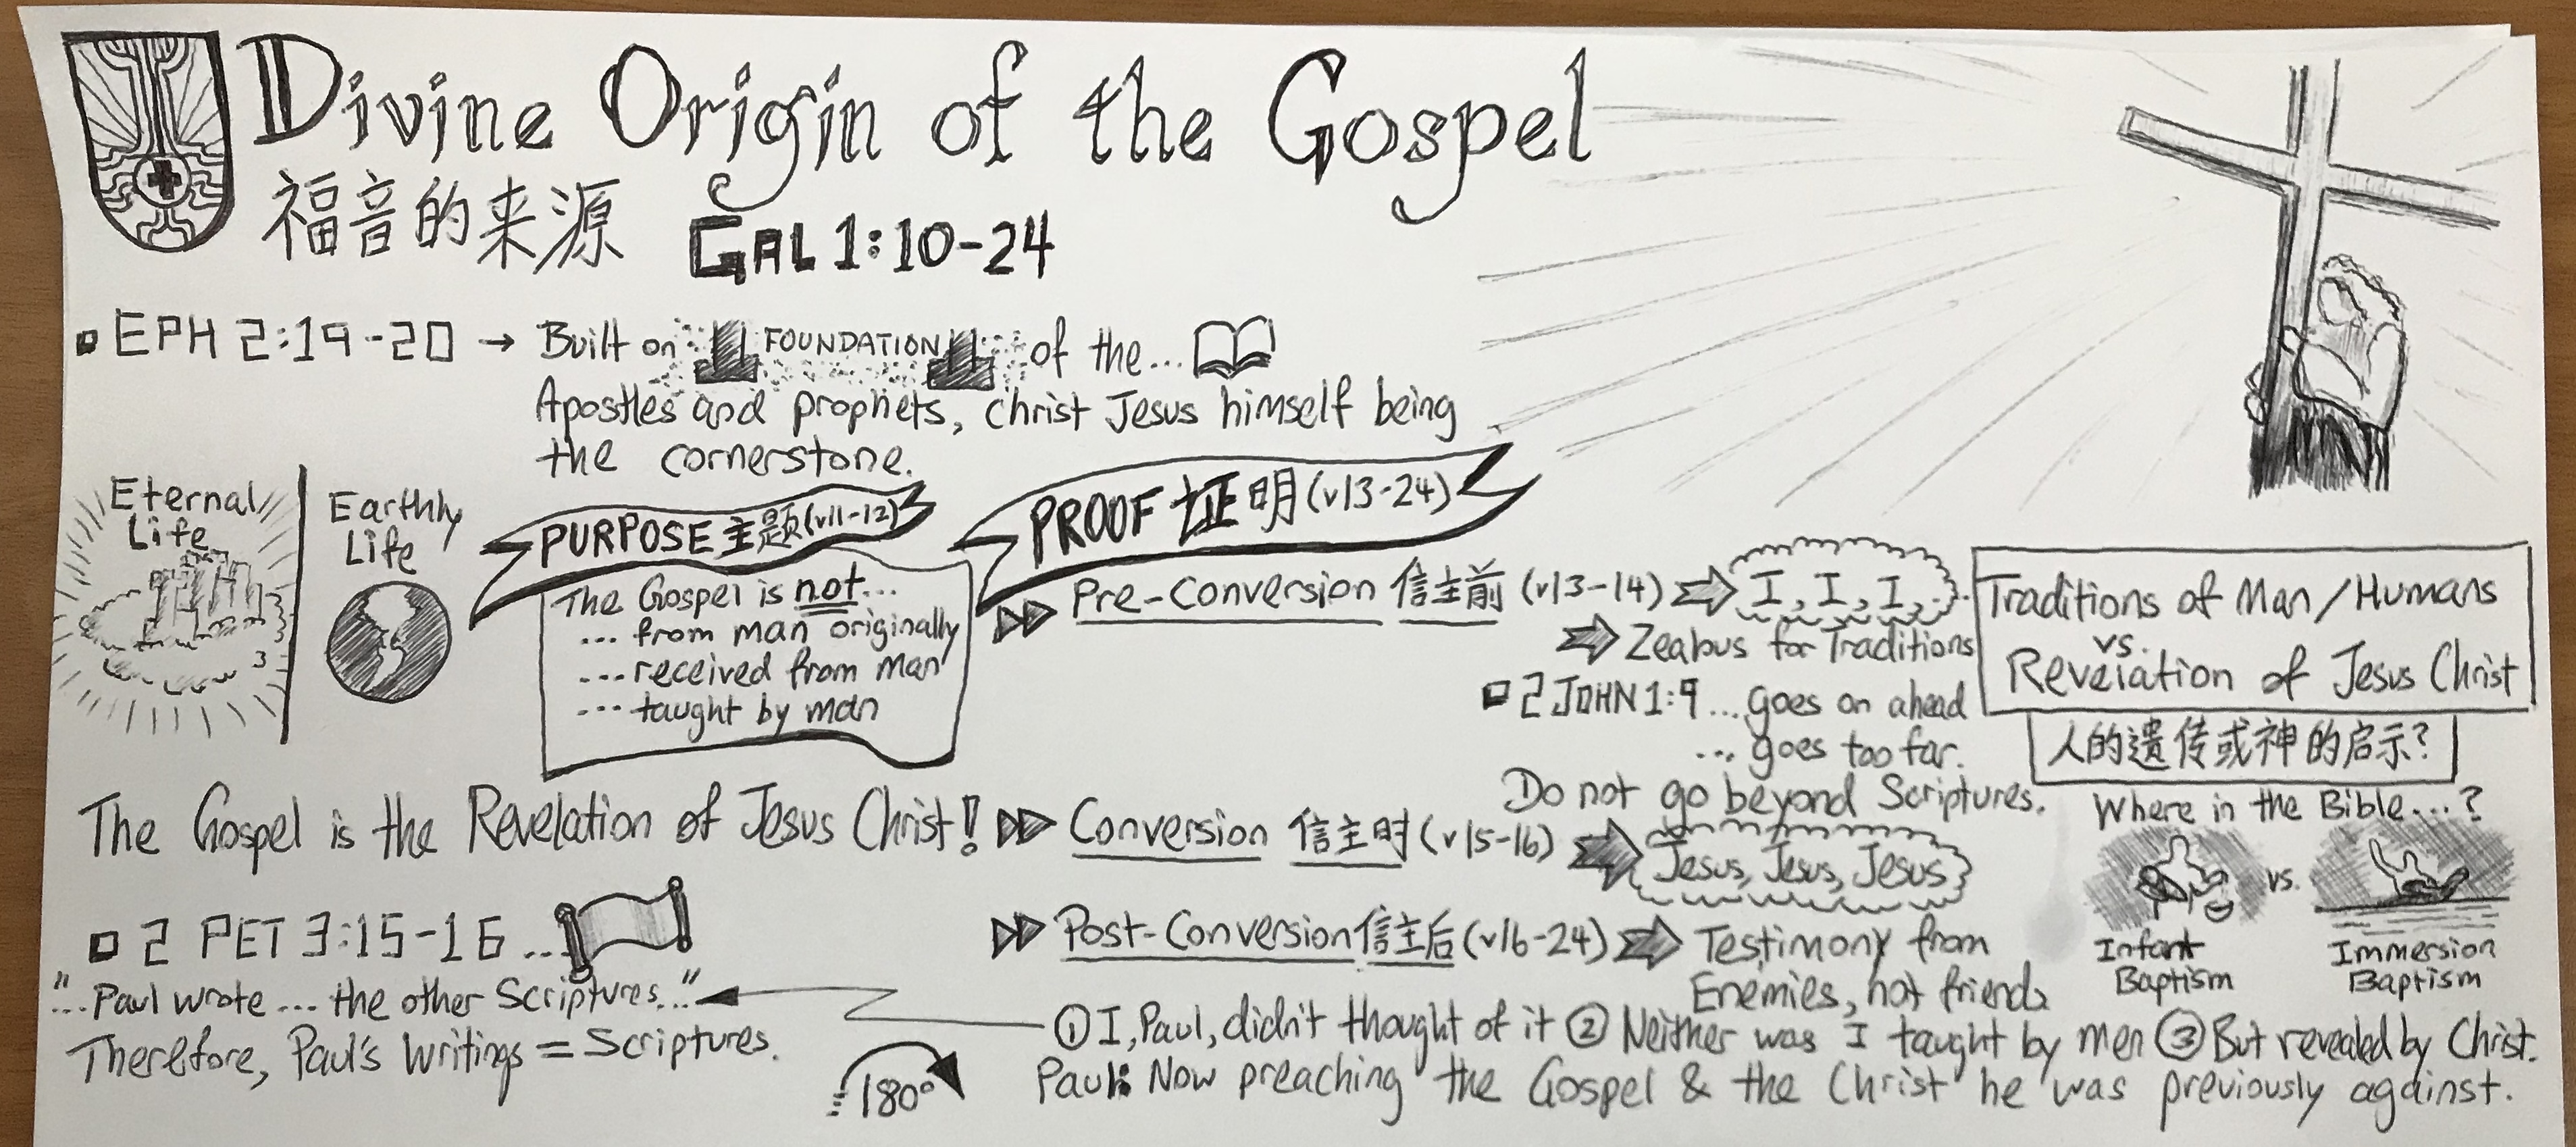 Divine Origin of the Gospel
福音的来源 GAL 1:10-24
EPH 2:19-20 → Built on FOUNDATION of the...
Apostles and prophets, Christ Jesus himself being
the cornerstone.
Eternal
Life
Earthly
Life
PURPOSE 主题 (v11-12)
The Gospel is not...
... from man originally
... received from man
... taught by man
The Gospel is the Revelation of Jesus Christ!
2 PET 3:15-16 ...
"... Paul wrote ... the other Scriptures..."
Therefore, Paul's Writings = Scriptures.
180°
PROOF 证明 (v13-24)
Pre-Conversion 信主前 (v13-14) ⇨ I, I, I,..
⇨ Zealous for Traditions
2 JOHN 1:9 ... goes on ahead
... goes too far.
Do not go beyond Scriptures.
Conversion 信主时 (v15-16) ⇨ Jesus, Jesus, Jesus
Post-Conversion 信主后 (v16-24) ⇨ Testimony from
Enemies, not friends
① I, Paul, didn't thought of it ② Neither was I taught by men ③ But revealed by Christ.
Paul: Now preaching the Gospel & the Christ he was previously against.
Traditions of Man/Humans
vs.
Revelation of Jesus Christ
人的遗传或神的启示?
Where in the Bible....?
vs.
Infant
Baptism
Immersion
Baptism